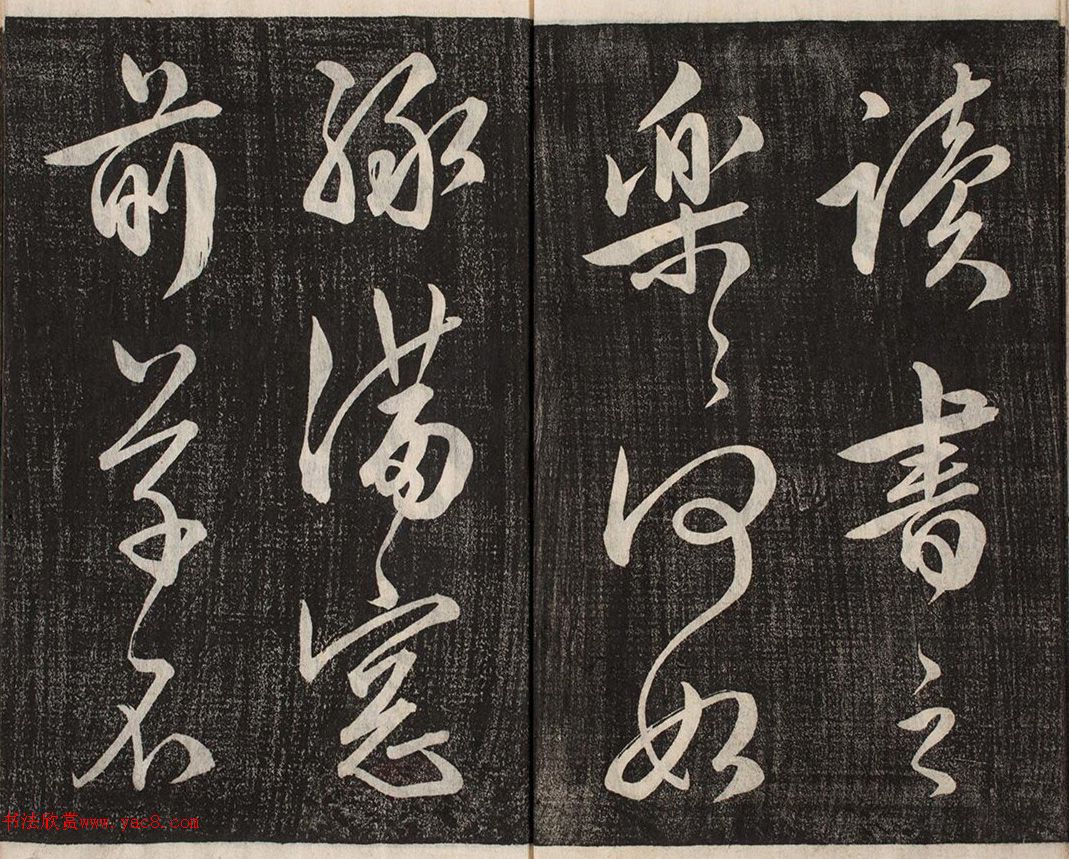 讀書之
樂樂何如
綠滿窓
前草不
书法欣赏www.yac8.com